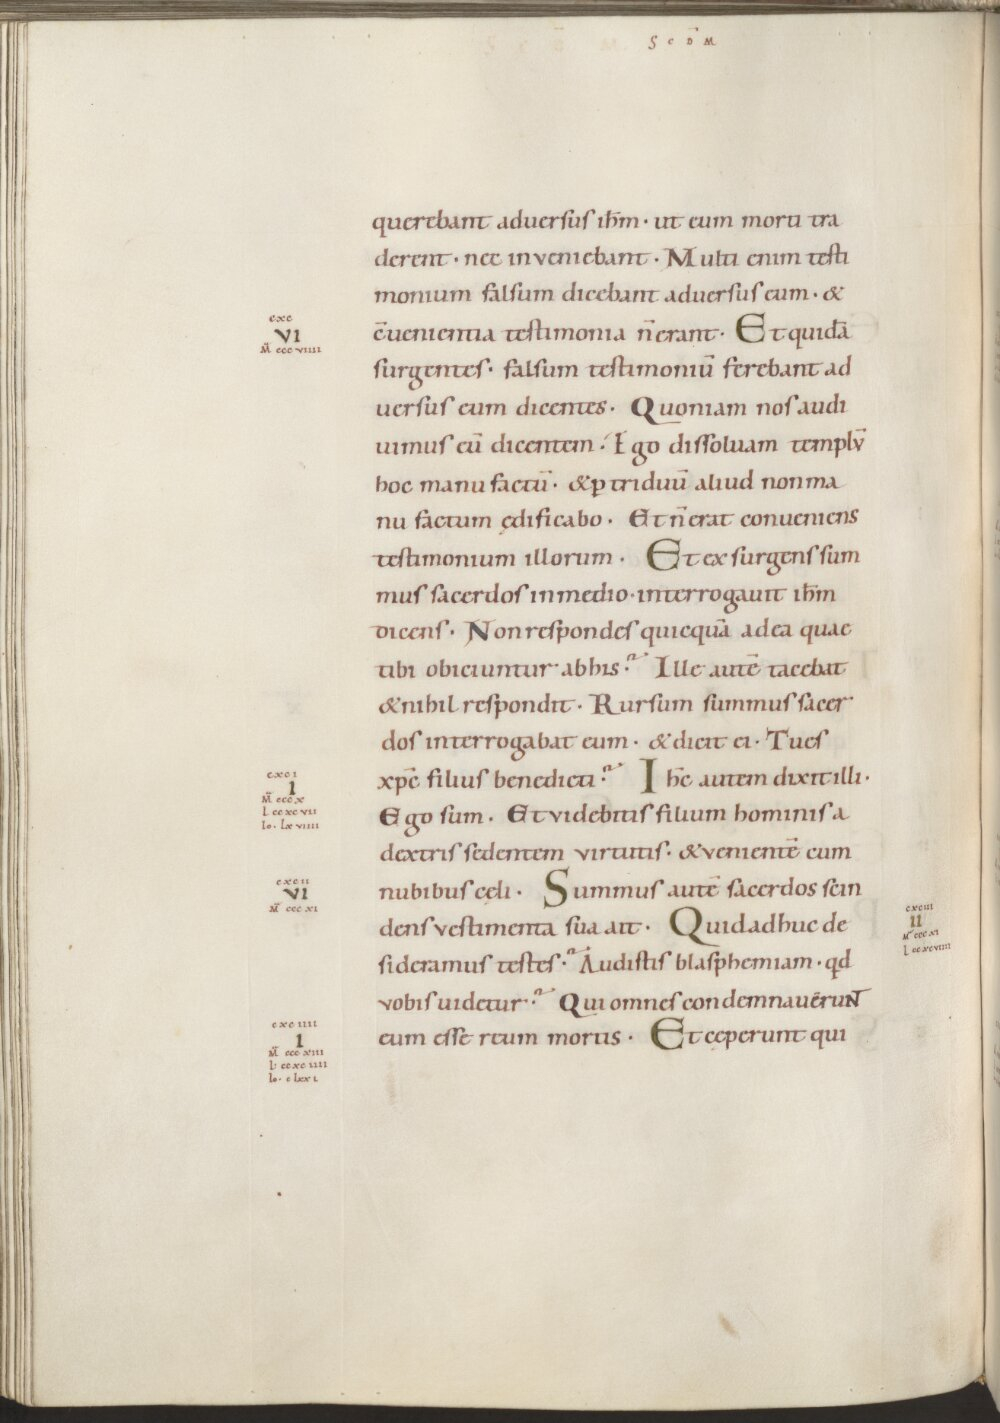 S c̄ D̄ M
querebant adversus ih̄m · ut eum morti tra
derent · nec inveniebant · Multi enim testi
monium falsum dicebant adversus eum · &
cxc
VI
M̄ cccviiii
c̄uenientia testimonia n̄ erant · Et quidā
surgentes · falsum testimoniū ferebant ad
uersus eum dicentes · Quoniam nos audi
uimus eū dicentem · Ego dissoluam templū
hoc manu factū · & p triduū aliud non ma
nu factum ędificabo · Et n̄ erat conueniens
testimonium illorum · Et exsurgens sum
mus sacerdos in medio · interrogauit ih̄m
dicens · Non respondes quicquā ad ea quae
tibi obiciuntur ab his? Ille autē tacebat
& nihil respondit · Rursum summus sacer
dos interrogabat eum · & dicit ei · Tu es
cxci
I
M̄ cccx
L ccxcvii
Io · lxviiii
xp̄c filius benedicti? Ih̄c autem dixit illi ·
Ego sum · Et videbitis filium hominis a
dextris sedentem virtutis · & venientē cum
cxcii
VI
M̄ cccxi
nubibus cęli · Summus autē sacerdos scin
dens vestimenta sua ait · Quid adhuc de
cxciii
II
M̄ cccxi
L ccxcviii
sideramus testes? Audistis blasphemiam · qd
vobis uidetur? Qui omnes condemnauērunt
cxciiii
I
M̄ cccxiii
L ccxciiii
Io · clxxi
eum esse reum mortis · Et cęperunt qui